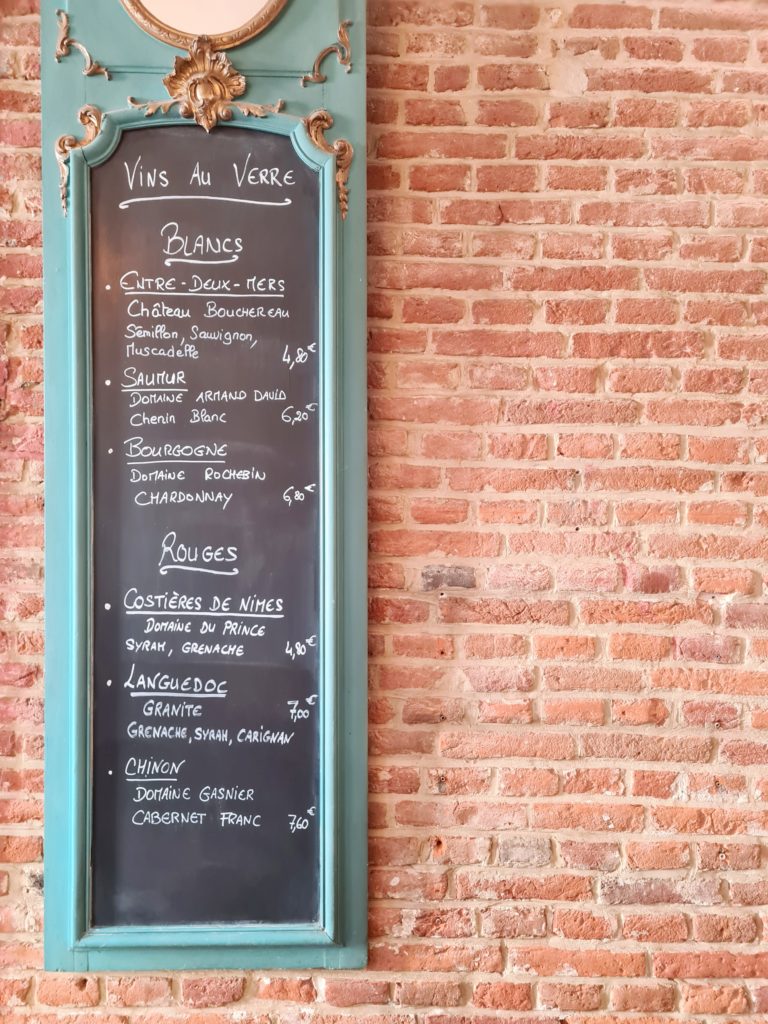 VINS AU VERRE
BLANCS
• ENTRE-DEUX-MERS
Château BOUCHEREAU
Sémillon, Sauvignon,
Muscadelle 4,80€
• SAUMUR
DOMAINE ARMAND DAVID
Chenin Blanc 6,20€
• BOURGOGNE
DOMAINE ROCHEBIN
CHARDONNAY 6,80€
ROUGES
• COSTIÈRES DE NIMES
DOMAINE DU PRINCE
SYRAH, GRENACHE 4,80€
• LANGUEDOC
GRANITE 7,00€
GRENACHE, SYRAH, CARIGNAN
• CHINON
DOMAINE GASNIER
CABERNET FRANC 7,60€